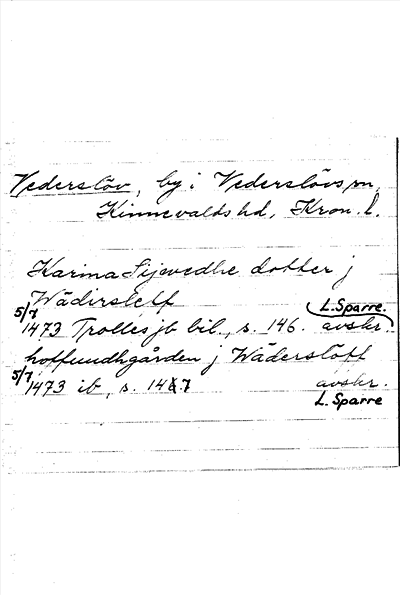 Vederslöv, by i Vederslövs sn,
Kinnevalds hd, Kron. l.
Karina Sijevedhe dotter j
Wädersleff
5/7 1473 Trolles jb bil., s. 146. avskr. L. Sparre.
hoffuudhgården j Wäderslöff
5/7 1473 ib, s. 147 avskr.
L. Sparre